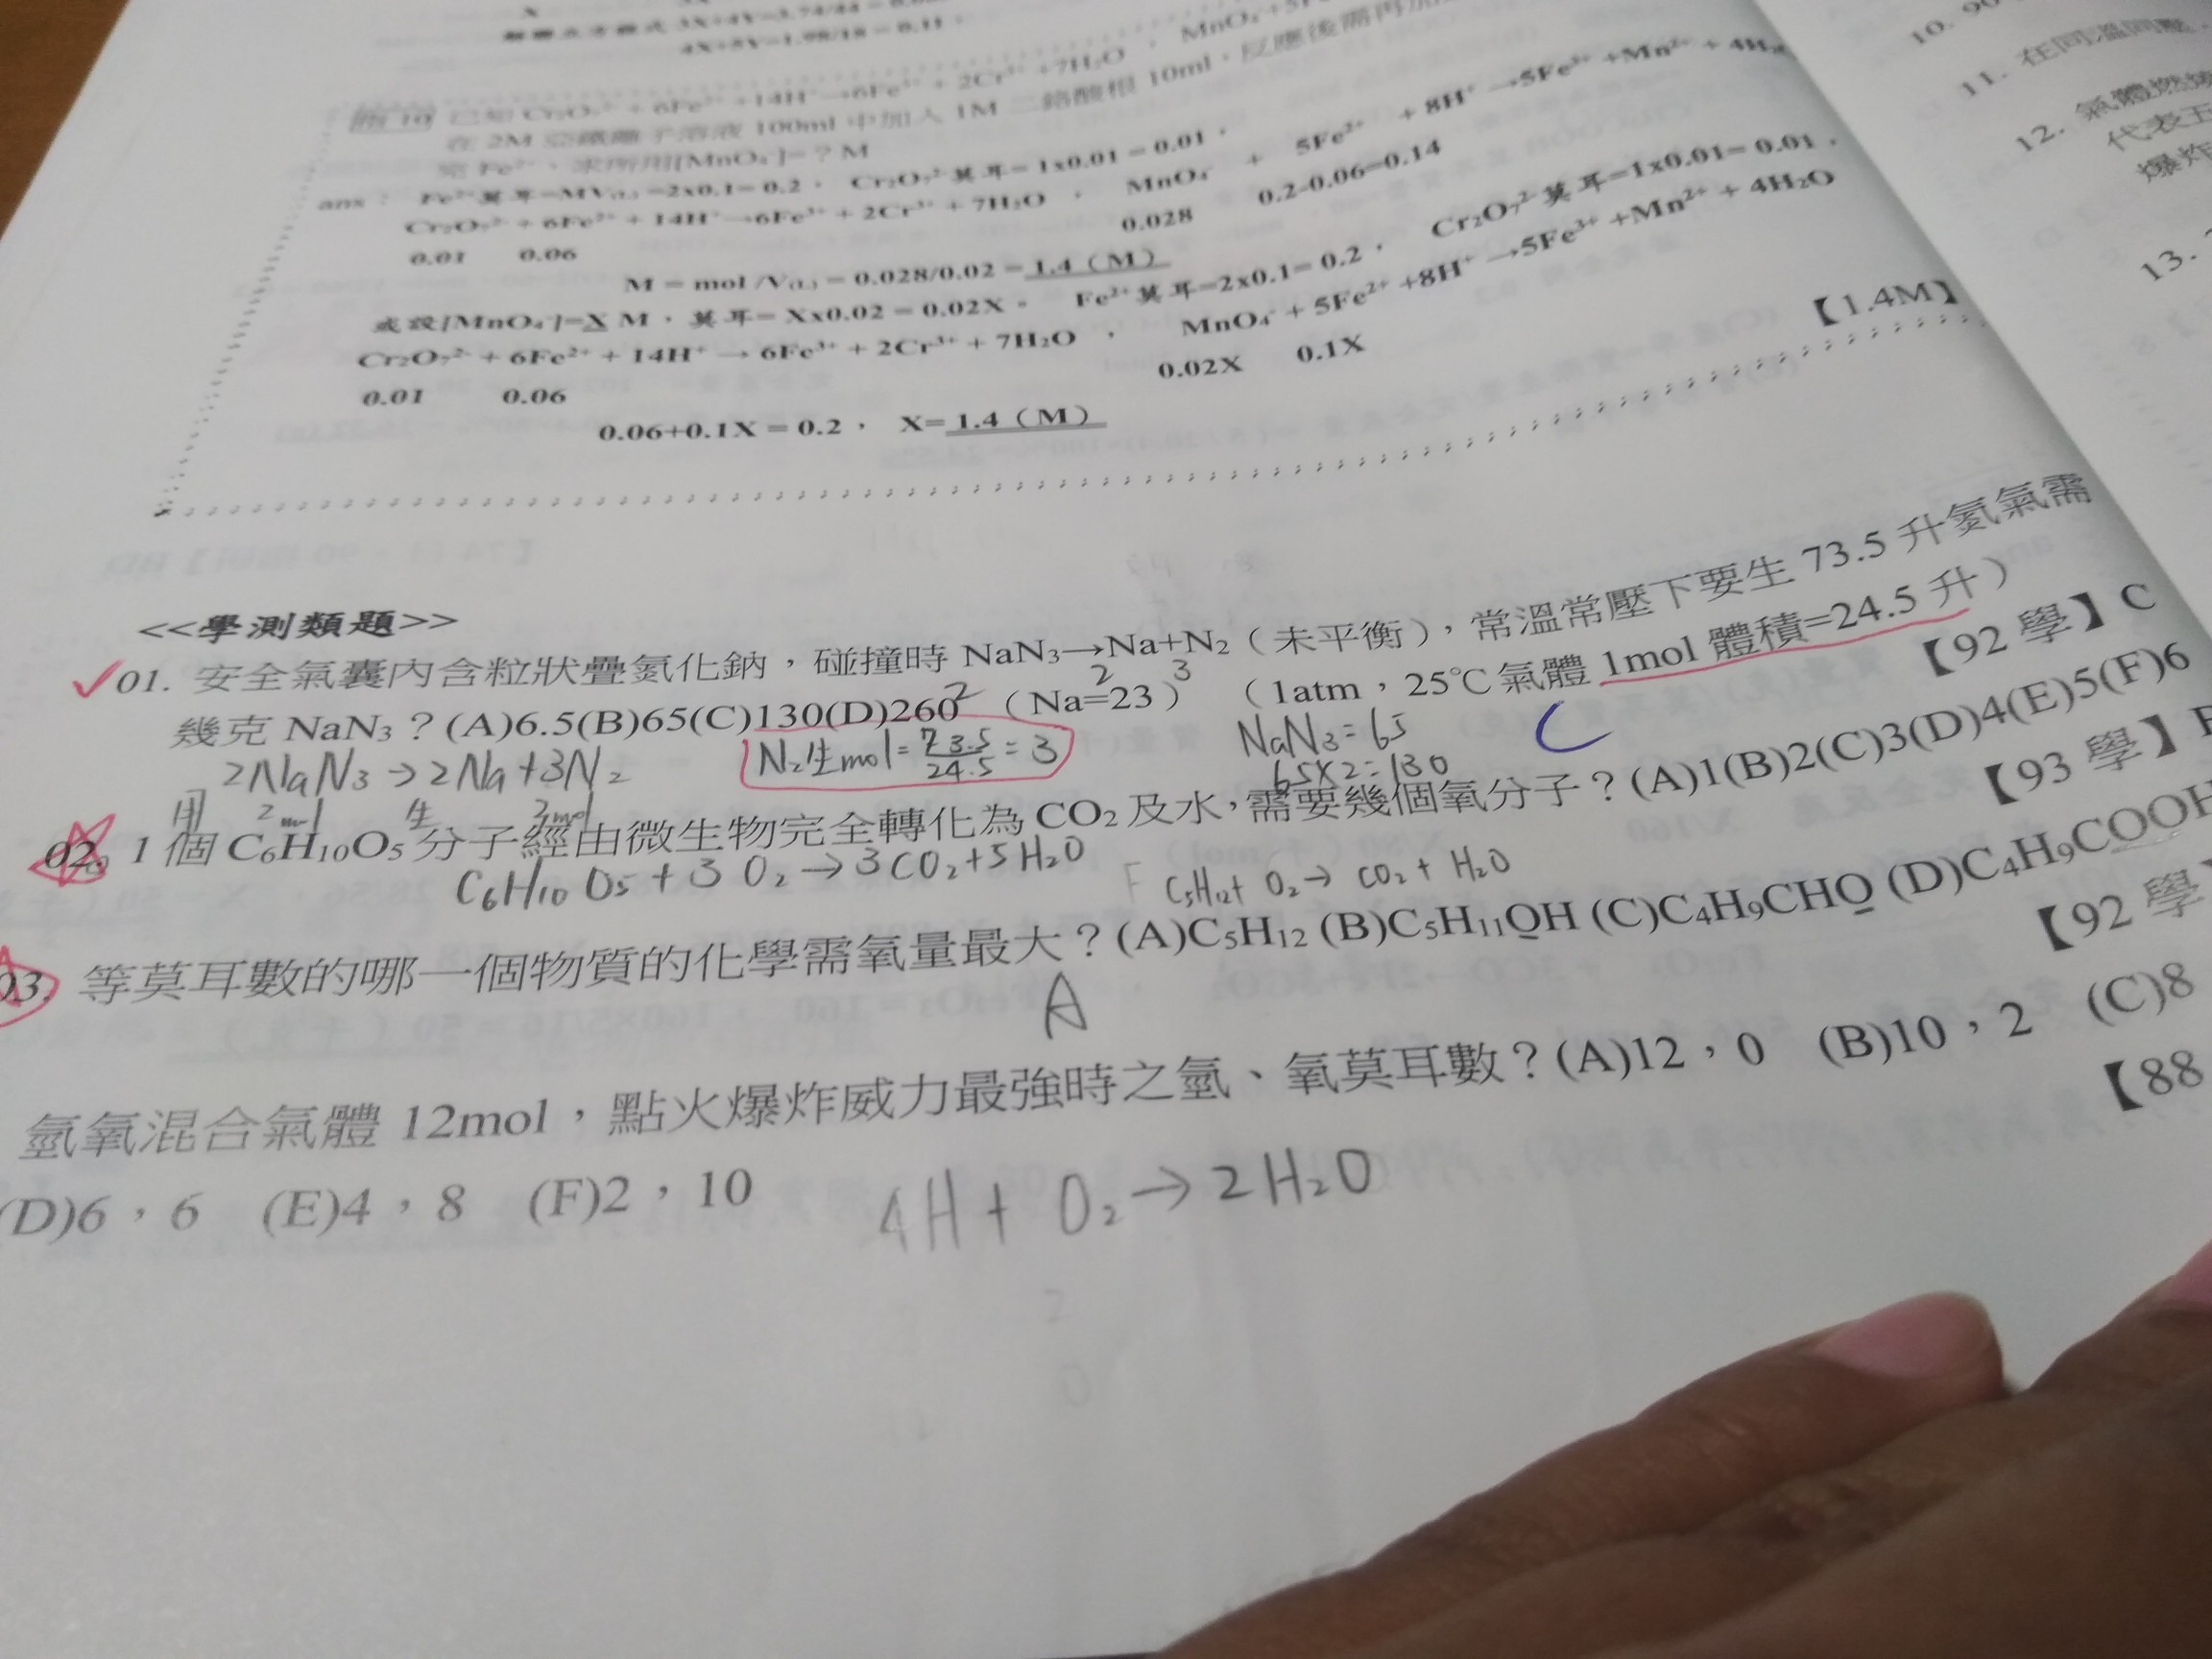 解聯立方程式 3X+4Y=3.74/44
4X+5Y=1.98/18=0.11
已知 Cr₂O₇²⁻ + 6Fe²⁺ +14H⁺→6Fe³⁺ + 2Cr³⁺ +7H₂O ,
在 2M 亞鐵離子溶液 100ml 中加入 1M 二鉻酸根 10ml,反應後需再加
Fe²⁺,求所用[MnO₄⁻]=?M
ans: Fe²⁺莫耳=MV(L)=2x0.1=0.2, Cr₂O₇²⁻莫耳=1x0.01=0.01,
Cr₂O₇²⁻ + 6Fe²⁺ + 14H⁺→6Fe³⁺ + 2Cr³⁺ + 7H₂O , MnO₄⁻ + 5Fe²⁺ + 8H⁺ →5Fe³⁺ +Mn²⁺ + 4H₂
0.01 0.06 0.028 0.2-0.06=0.14
M=mol /V(L)=0.028/0.02=1.4(M)
或設[MnO₄⁻]=X M,莫耳=Xx0.02=0.02X。 Fe²⁺莫耳=2x0.1=0.2, Cr₂O₇²⁻莫耳=1x0.01=0.01,
Cr₂O₇²⁻ + 6Fe²⁺ + 14H⁺ → 6Fe³⁺ + 2Cr³⁺ + 7H₂O , MnO₄⁻ + 5Fe²⁺ +8H⁺ →5Fe³⁺ +Mn²⁺ + 4H₂O
0.01 0.06 0.02X 0.1X
0.06+0.1X=0.2, X=1.4(M)
【1.4M】
<<學測類題>>
01. 安全氣囊內含粒狀疊氮化鈉,碰撞時 NaN₃→Na+N₂(未平衡),常溫常壓下要生 73.5 升氮氣需
2 2 3
幾克 NaN₃?(A)6.5(B)65(C)130(D)260 (Na=23) (1atm,25℃氣體 1mol 體積=24.5 升)
【92 學】C
2NaN₃→2Na+3N₂
用 2mol 生 3mol
N₂生mol=73.5/24.5=3
NaN₃=65
65×2=130
C
02. 1 個 C₆H₁₀O₅ 分子經由微生物完全轉化為 CO₂ 及水,需要幾個氧分子?(A)1(B)2(C)3(D)4(E)5(F)6
【93 學】
C₆H₁₀O₅+3O₂→3CO₂+5H₂O
F
C₅H₁₂+ O₂→ CO₂+ H₂O
03. 等莫耳數的哪一個物質的化學需氧量最大?(A)C₅H₁₂ (B)C₅H₁₁OH (C)C₄H₉CHO (D)C₄H₉COOH
【92 學】
A
氫氧混合氣體 12mol,點火爆炸威力最強時之氫、氧莫耳數?(A)12,0 (B)10,2 (C)8
【88
(D)6,6 (E)4,8 (F)2,10
4H+ O₂→2H₂O
11. 在同溫同壓
12. 氣體燃燒
代表
爆炸
13.